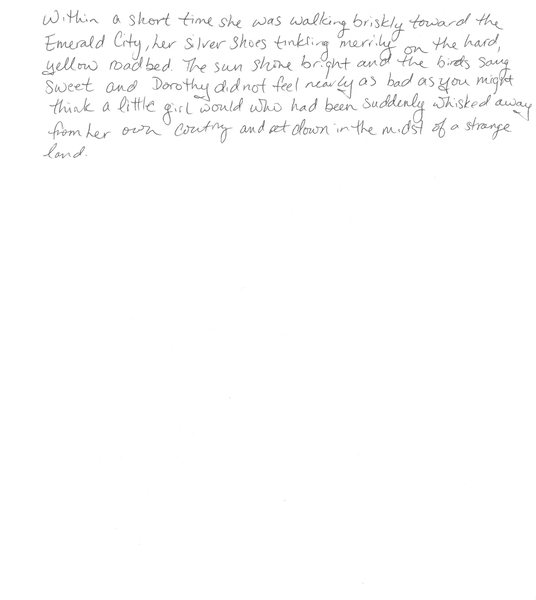 Within a short time she was walking briskly toward the
Emerald City, her silver shoes tinkling merrily on the hard,
yellow roadbed. The sun shine bright and the birds sang
sweet and Dorothy did not feel nearly as bad as you might
think a little girl would who had been suddenly whisked away
from her own country and set down in the midst of a strange
land.